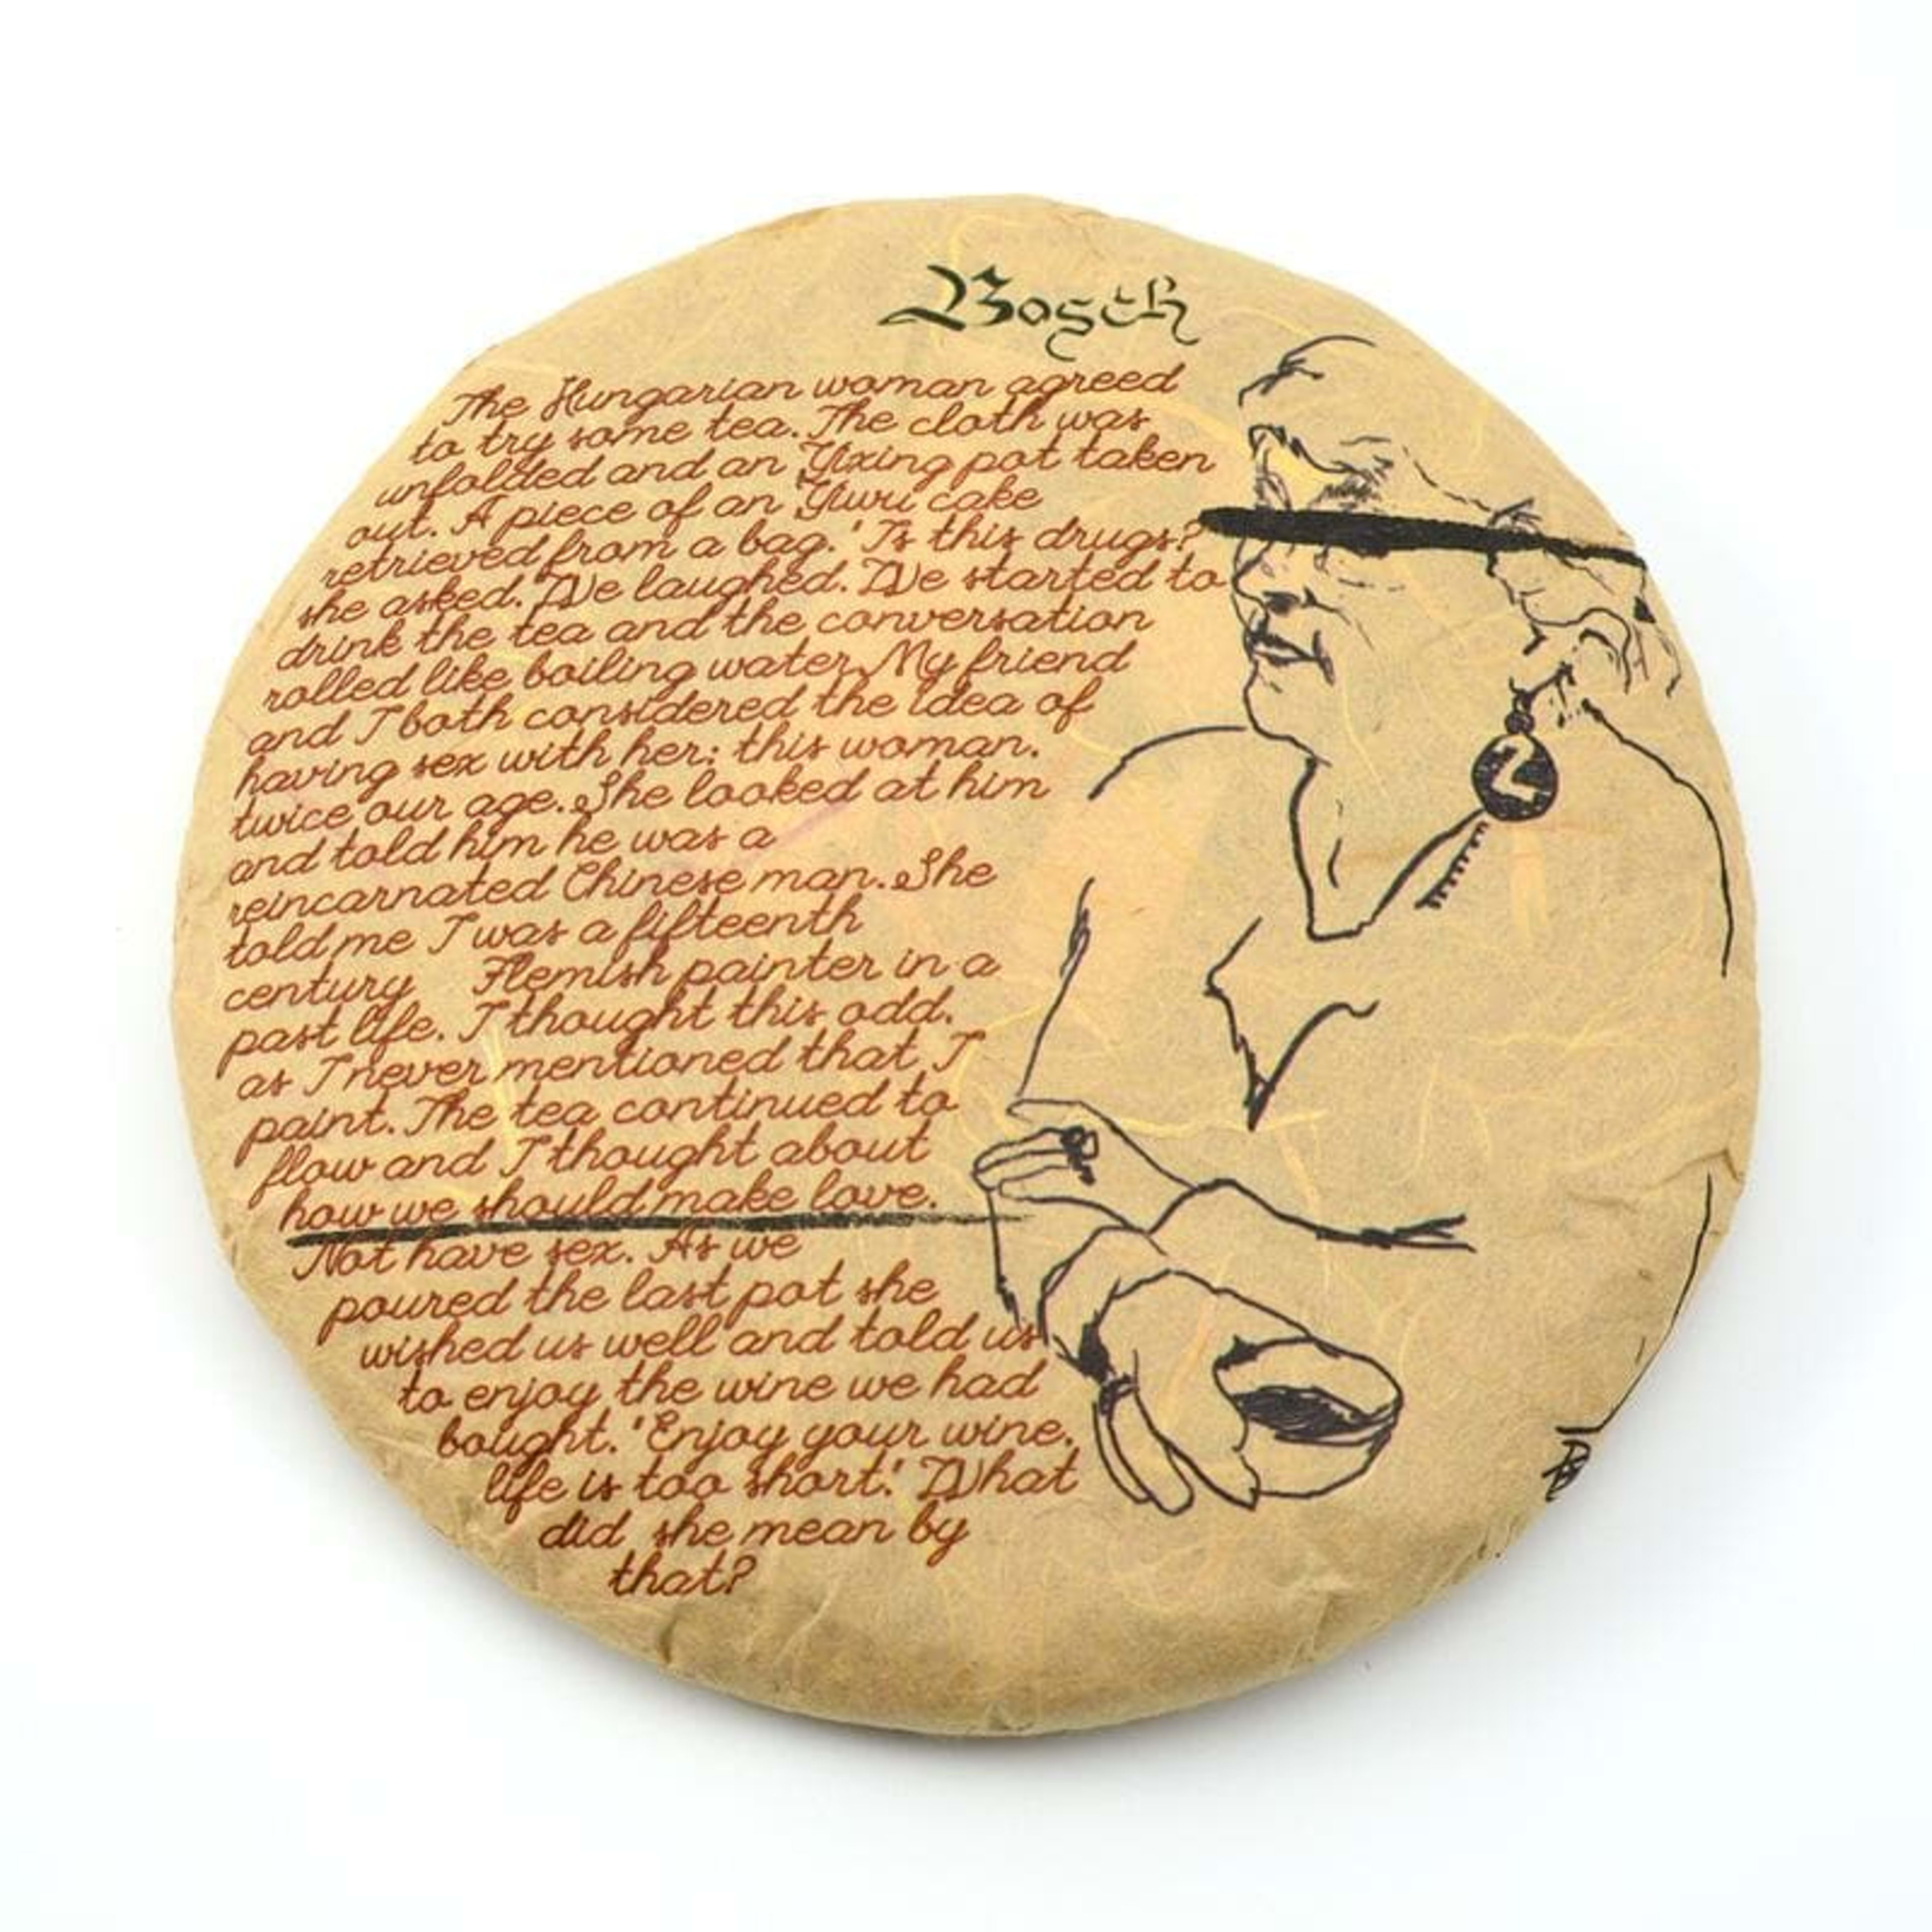 Bosch
The Hungarian woman agreed
to try some tea. The cloth was
unfolded and an Yixing pot taken
out. A piece of an Yiwu cake
retrieved from a bag. 'Is this drugs?'
she asked. We laughed. We started to
drink the tea and the conversation
rolled like boiling water. My friend
and I both considered the idea of
having sex with her: this woman.
twice our age. She looked at him
and told him he was a
reincarnated Chinese man. She
told me I was a fifteenth
century Flemish painter in a
past life. I thought this odd.
as I never mentioned that I
paint. The tea continued to
flow and I thought about
how we should make love.
Not have sex. As we
poured the last pot she
wished us well and told us
to enjoy the wine we had
bought. 'Enjoy your wine.
life is too short.' What
did she mean by
that?